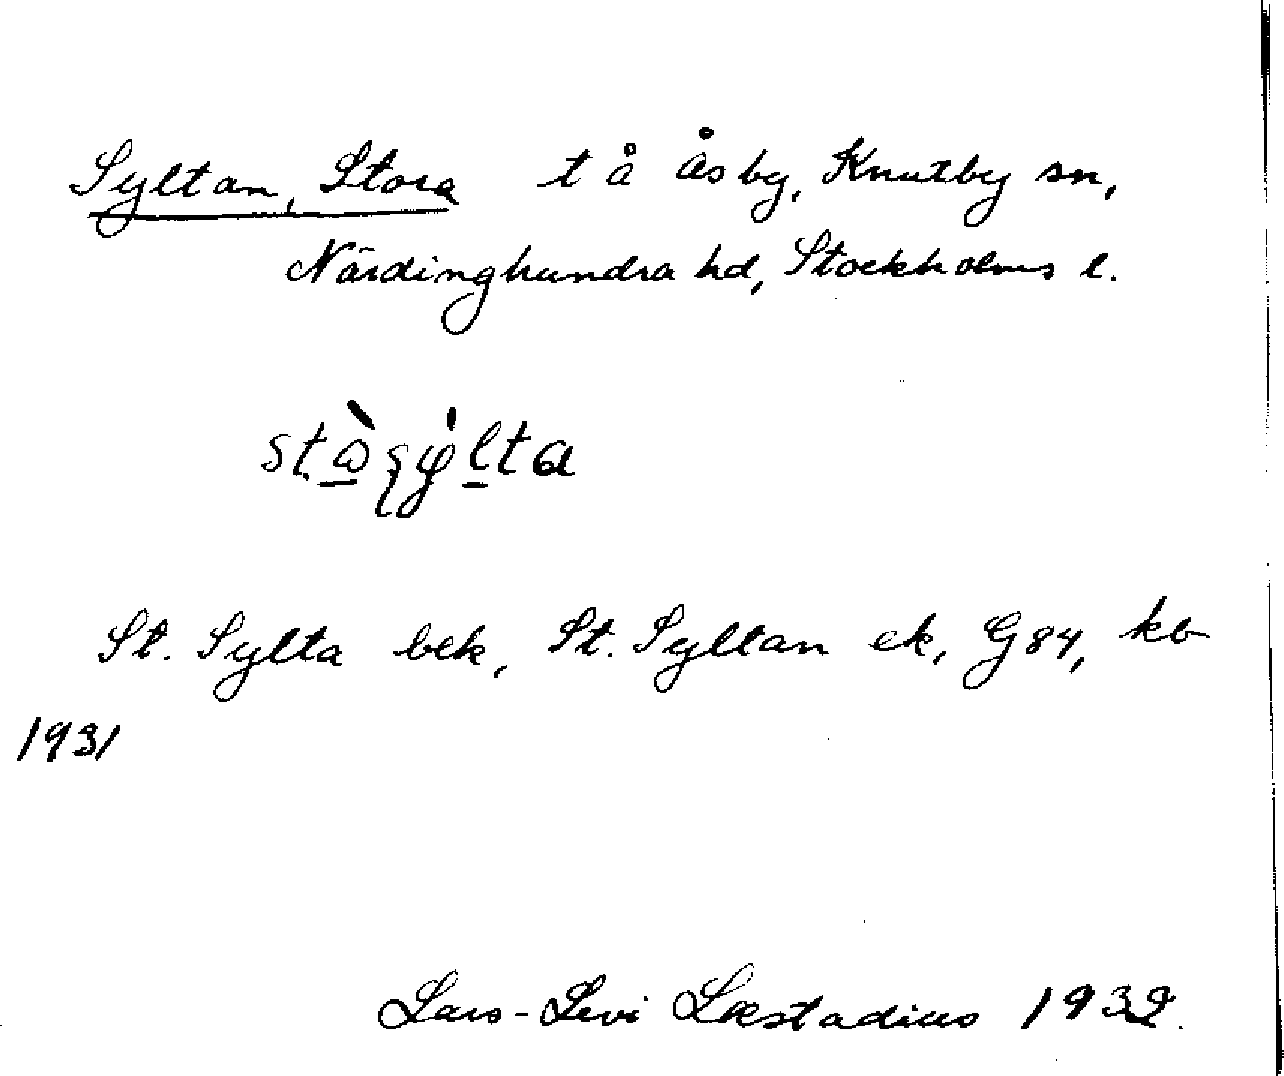 Syltan, Stora t å Åsby, Knutby sn,
Närdinghundra hd, Stockholms l.
St. Sylta bek, St. Syltan ek, G84, kb
1931
Lars-Levi Læstadius 1932.